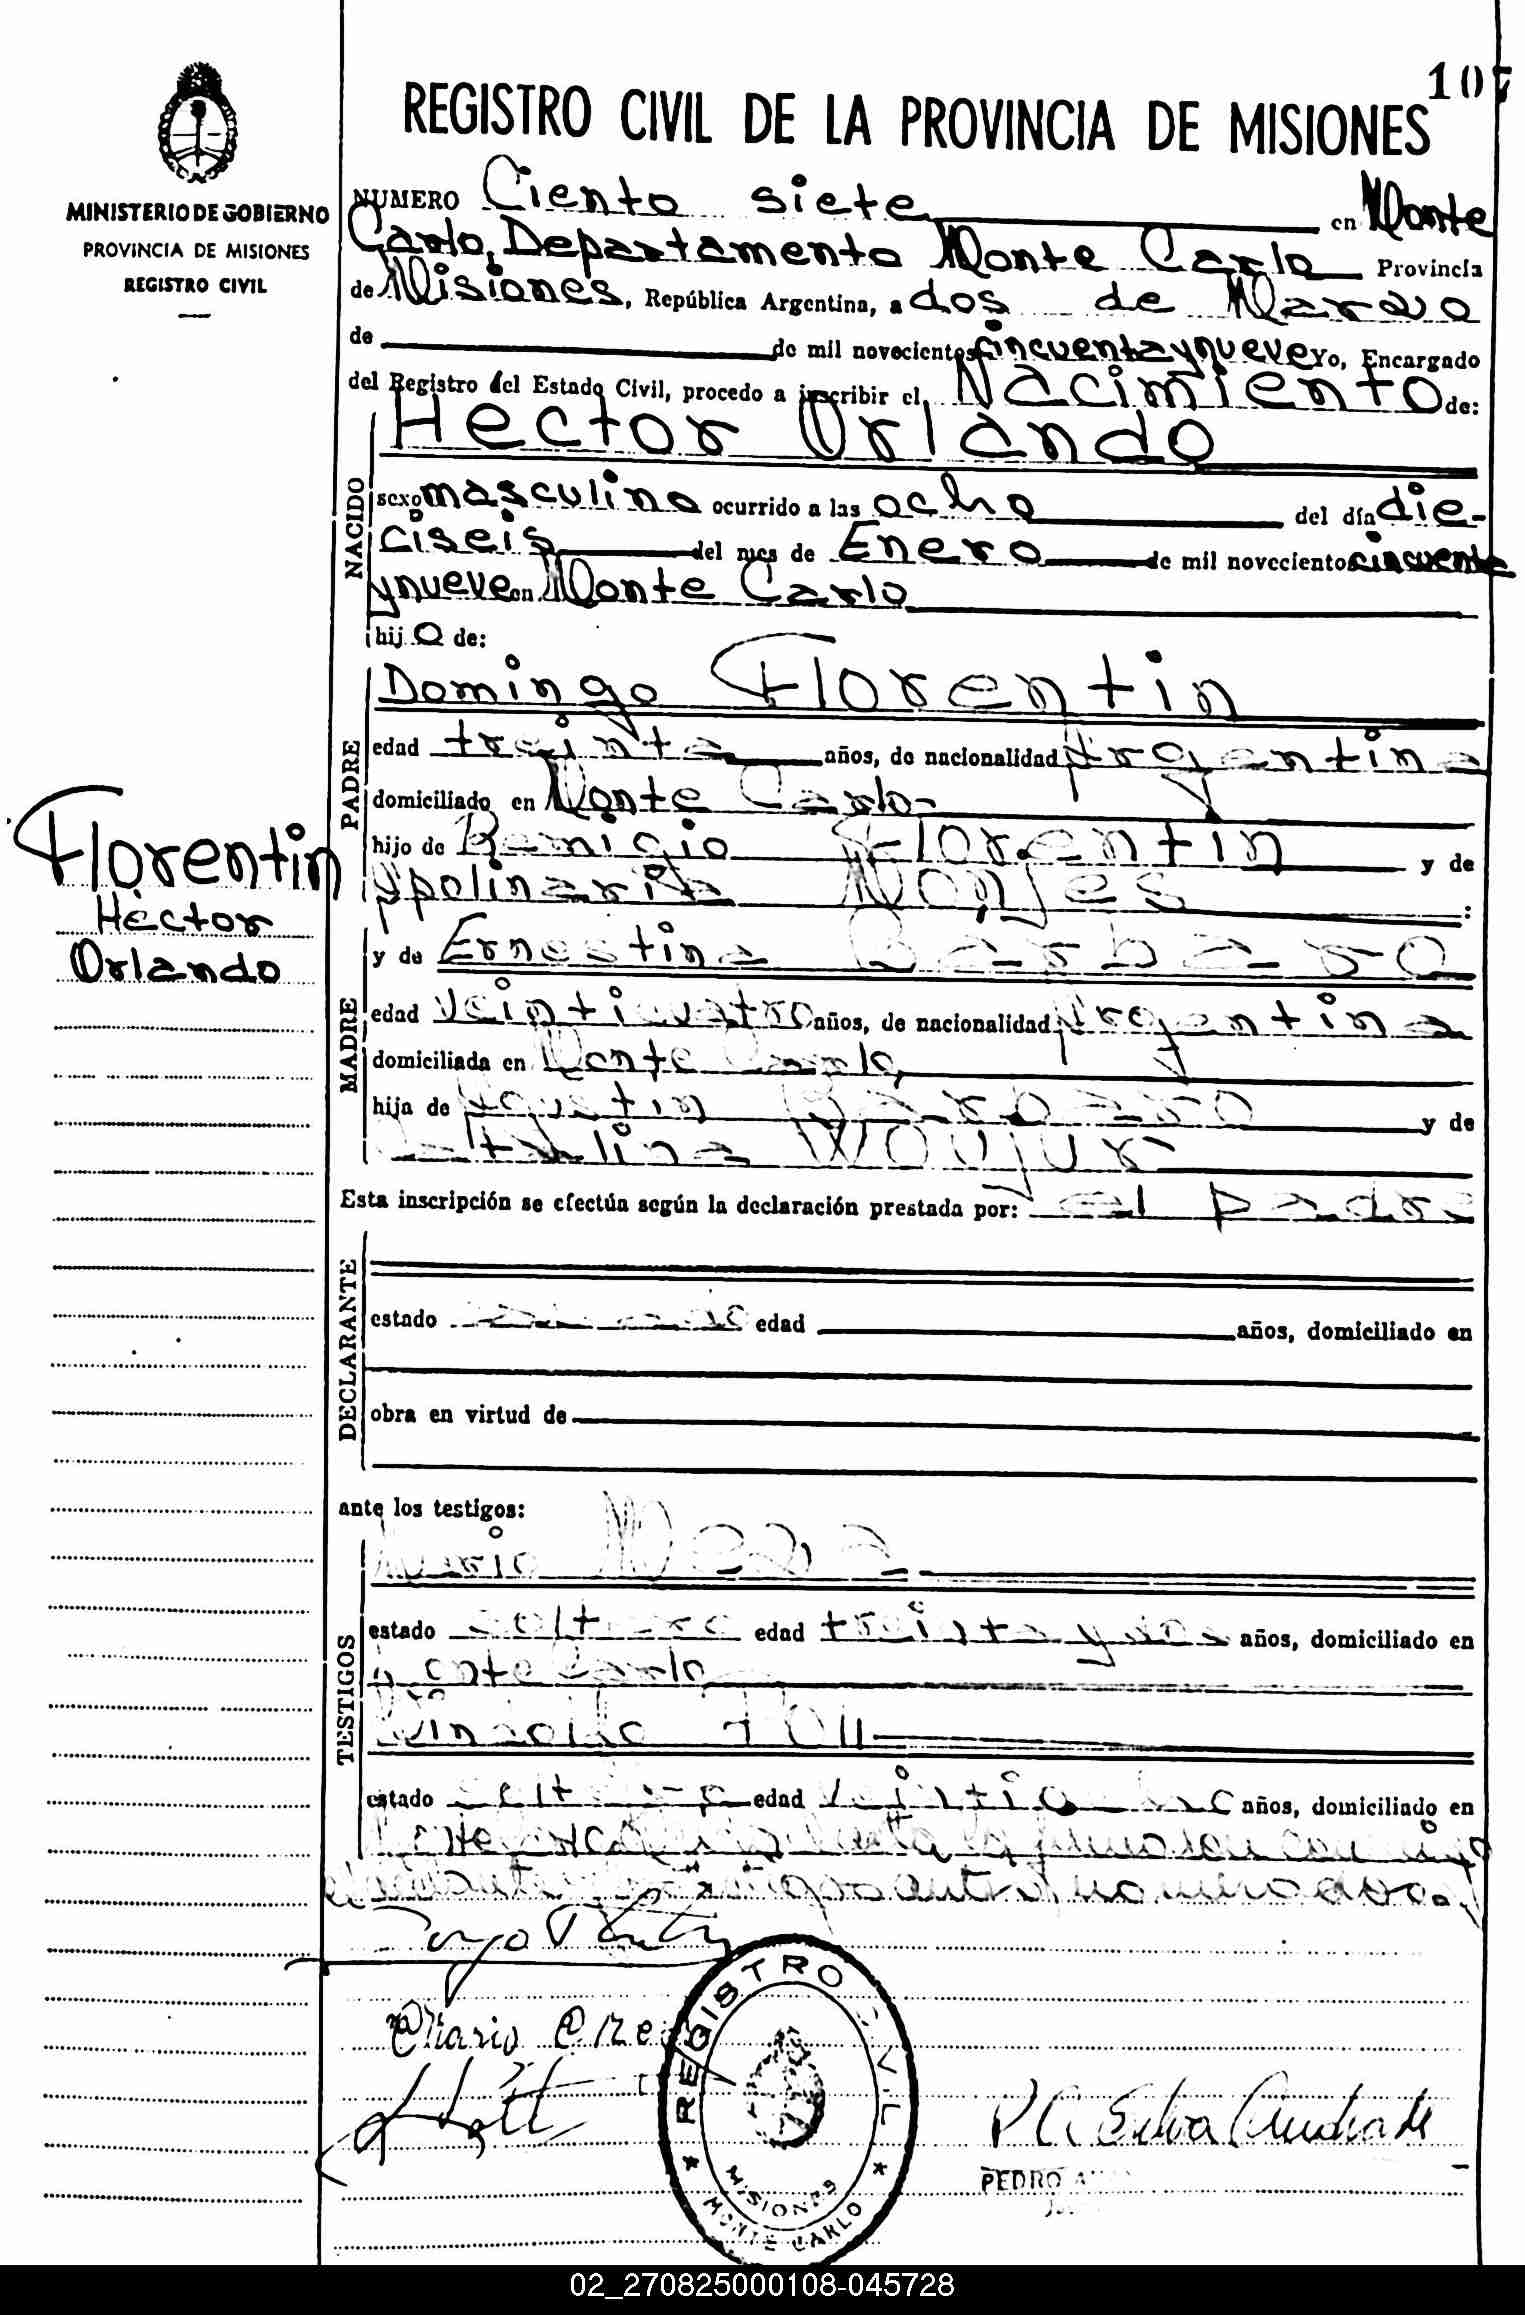 107
REGISTRO CIVIL DE LA PROVINCIA DE MISIONES
MINISTERIO DE GOBIERNO
PROVINCIA DE MISIONES
REGISTRO CIVIL
NUMERO Ciento siete en Monte
Carlo, Departamento Monte Carlo Provincia
de Misiones, República Argentina, a dos de Marzo
de de mil novecientos cincuenta y nueve Yo, Encargado
del Registro del Estado Civil, procedo a inscribir el Nacimiento de:
Hector Orlando
NACIDO
sexo masculino ocurrido a las ocho del día die-
ciseis del mes de Enero de mil novecientos cincuenta
y nueve en Monte Carlo
hijo de:
PADRE
Domingo Florentin
edad treinta años, de nacionalidad Argentina
domiciliado en Monte Carlo-
hijo de Remigio Florentin y de
Apolinaria Monjes :
Florentin
Hector
Orlando
MADRE
y de Ernestina Barbaro
edad veinticuatro años, de nacionalidad Argentina
domiciliada en Monte Carlo,
hija de Agustin Barbaro y de
Esta inscripción se efectúa según la declaración prestada por: el padre
DECLARANTE
estado edad años, domiciliado en
obra en virtud de
ante los testigos:
TESTIGOS
Mario Meza
estado soltero edad treinta y años, domiciliado en
Monte Carlo
estado edad años, domiciliado en
REGISTRO CIVIL
MISIONES
MONTE CARLO
Silva Andrade
PEDRO
02_270825000108-045728